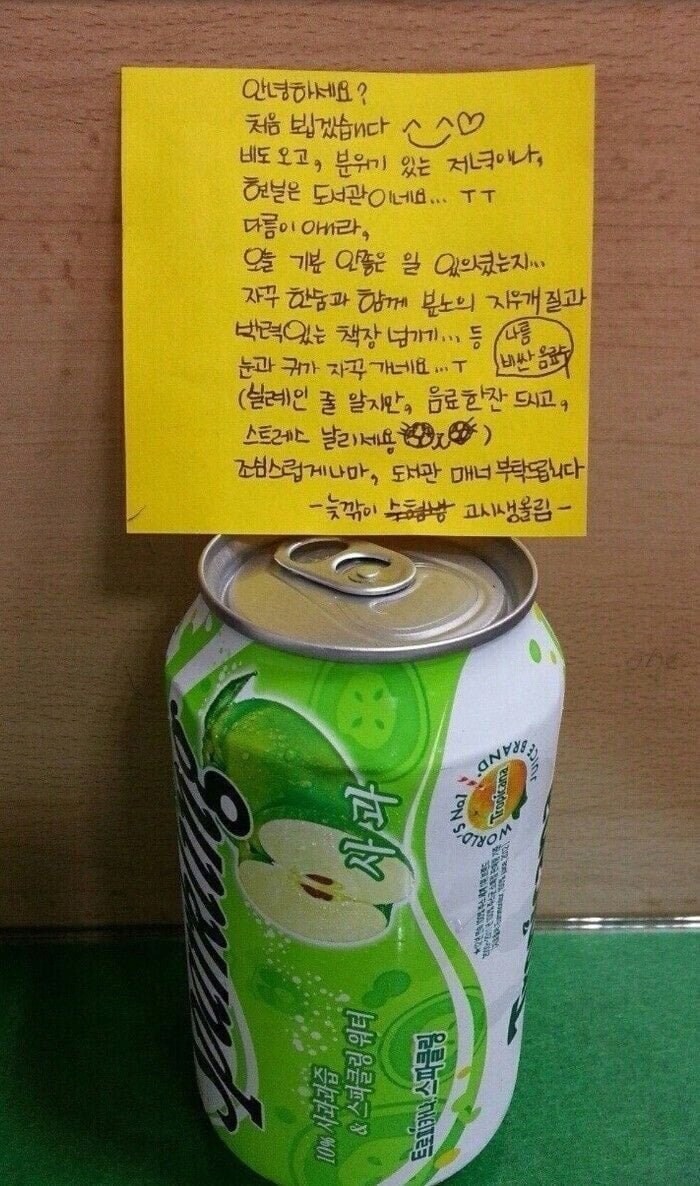 안녕하세요?
처음 뵙겠습니다 ^_^♡
비도 오고, 분위기 있는 저녁이나,
현실은 도서관이네요... ㅜㅜ
다름이 아니라,
오늘 기분 안좋은 일 있으셨는지...
자꾸 한숨과 함께 분노의 지우개질과
박력있는 책장 넘기기... 등
나름
비싼 음료
눈과 귀가 자꾸 가네요...ㅜ
(실례인 줄 알지만, 음료한잔 드시고,
스트레스 날리세요)
조심스럽게나마, 도서관 매너 부탁드립니다
-늦깎이 고시생올림-
Sparkling
사과
WORLD'S No.1 JUICE BRAND.
Tropicana
10% 사과과즙
& 스파클링 워터
트로피카나 스파클링